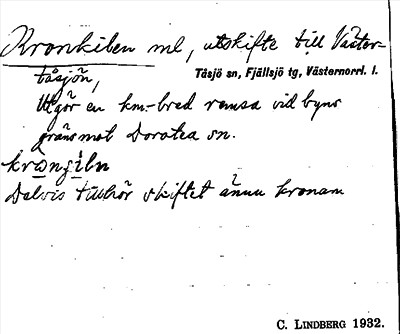 Kronkilen ml, utskifte till Väster-
tåsjön,
Tåsjö sn, Fjällsjö tg, Västernorrl. l.
Utgör en km-bred remsa vid byns
gräns mot Dorotea sn.
Delvis tillhör skiftet ännu kronan
C. LINDBERG 1932.